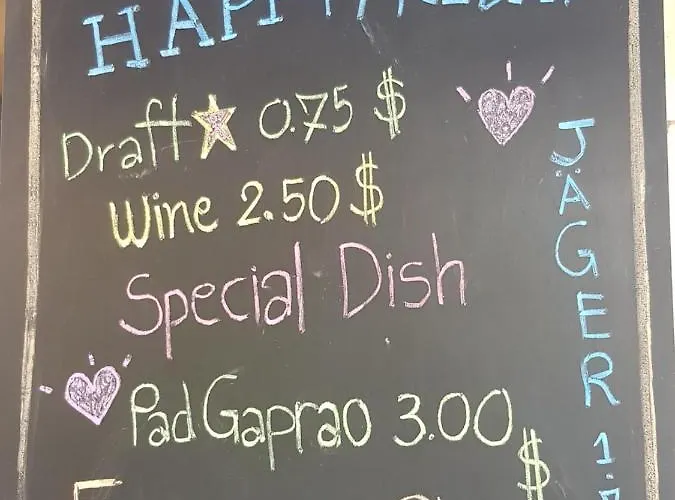 Draft 0.75 $
Wine 2.50 $
Special Dish
Pad Gaprao 3.00 $
JÄGER